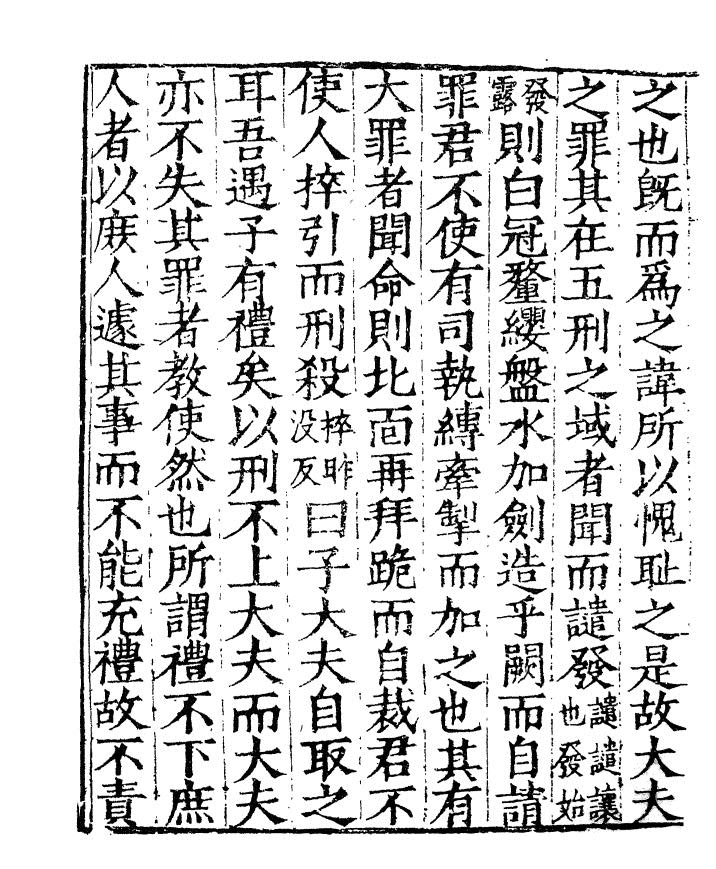 之也旣而爲之諱所以愧耻之是故大夫
之罪其在五刑之域者聞而譴發譴譴讓也發始
發露則白冠氂纓盤水加劍造乎闕而自請
罪君不使有司執縛牽掣而加之也其有
大罪者聞命則北面再拜跪而自裁君不
使人捽引而刑殺捽昨没反曰子大夫自取之
耳吾遇子有禮矣以刑不上大夫而大夫
亦不失其罪者教使然也所謂禮不下庶
人者以庻人遽其事而不能充禮故不責